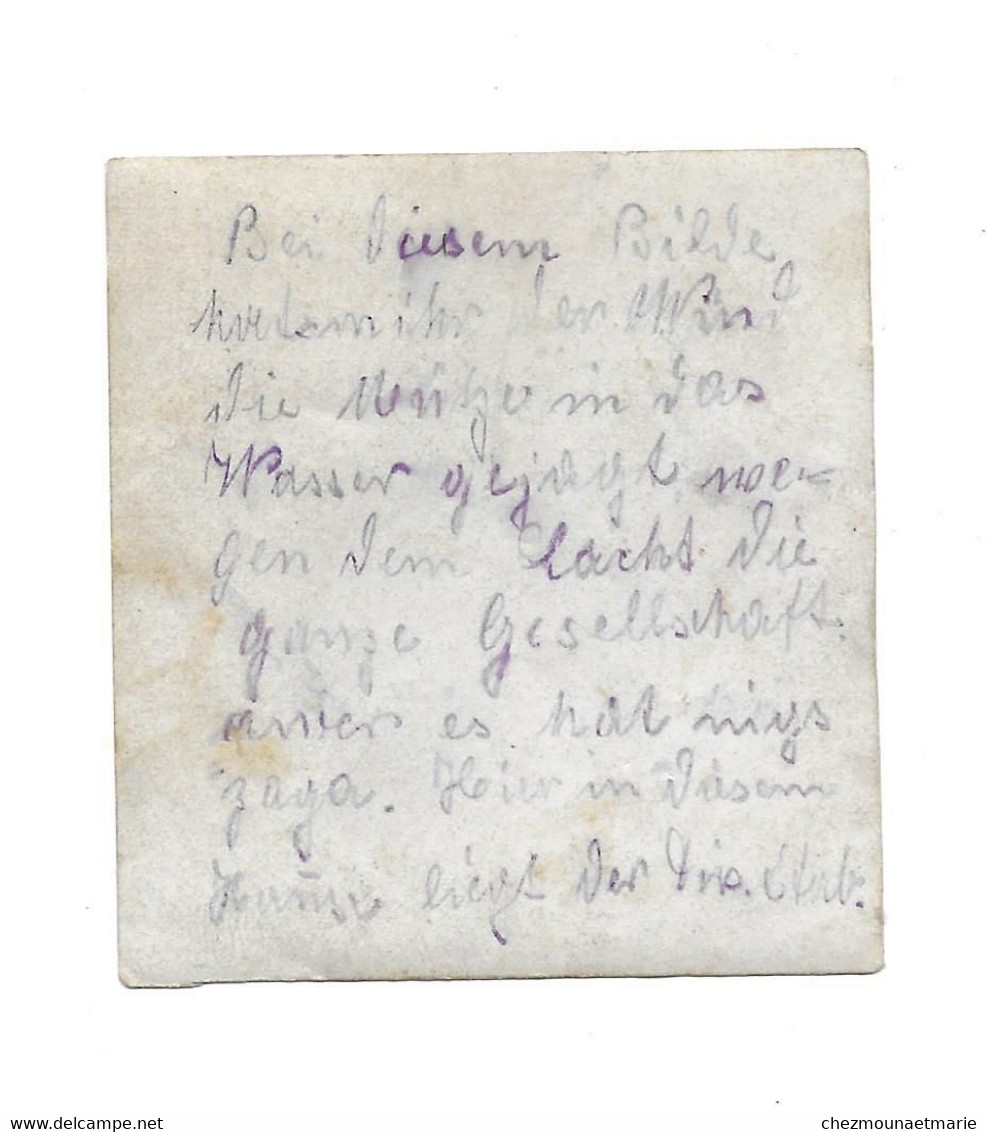 Bei diesem Bilde
hatsmihr der Wind
die Mütze in das
Wasser gejagt, we-
gen dem lacht die
ganze Gesellschaft.
awer es hat nigs
zaga. Hier in diesem
Hauße liegt der Div. Stab.
delcampe.net
chezmounaetmarie